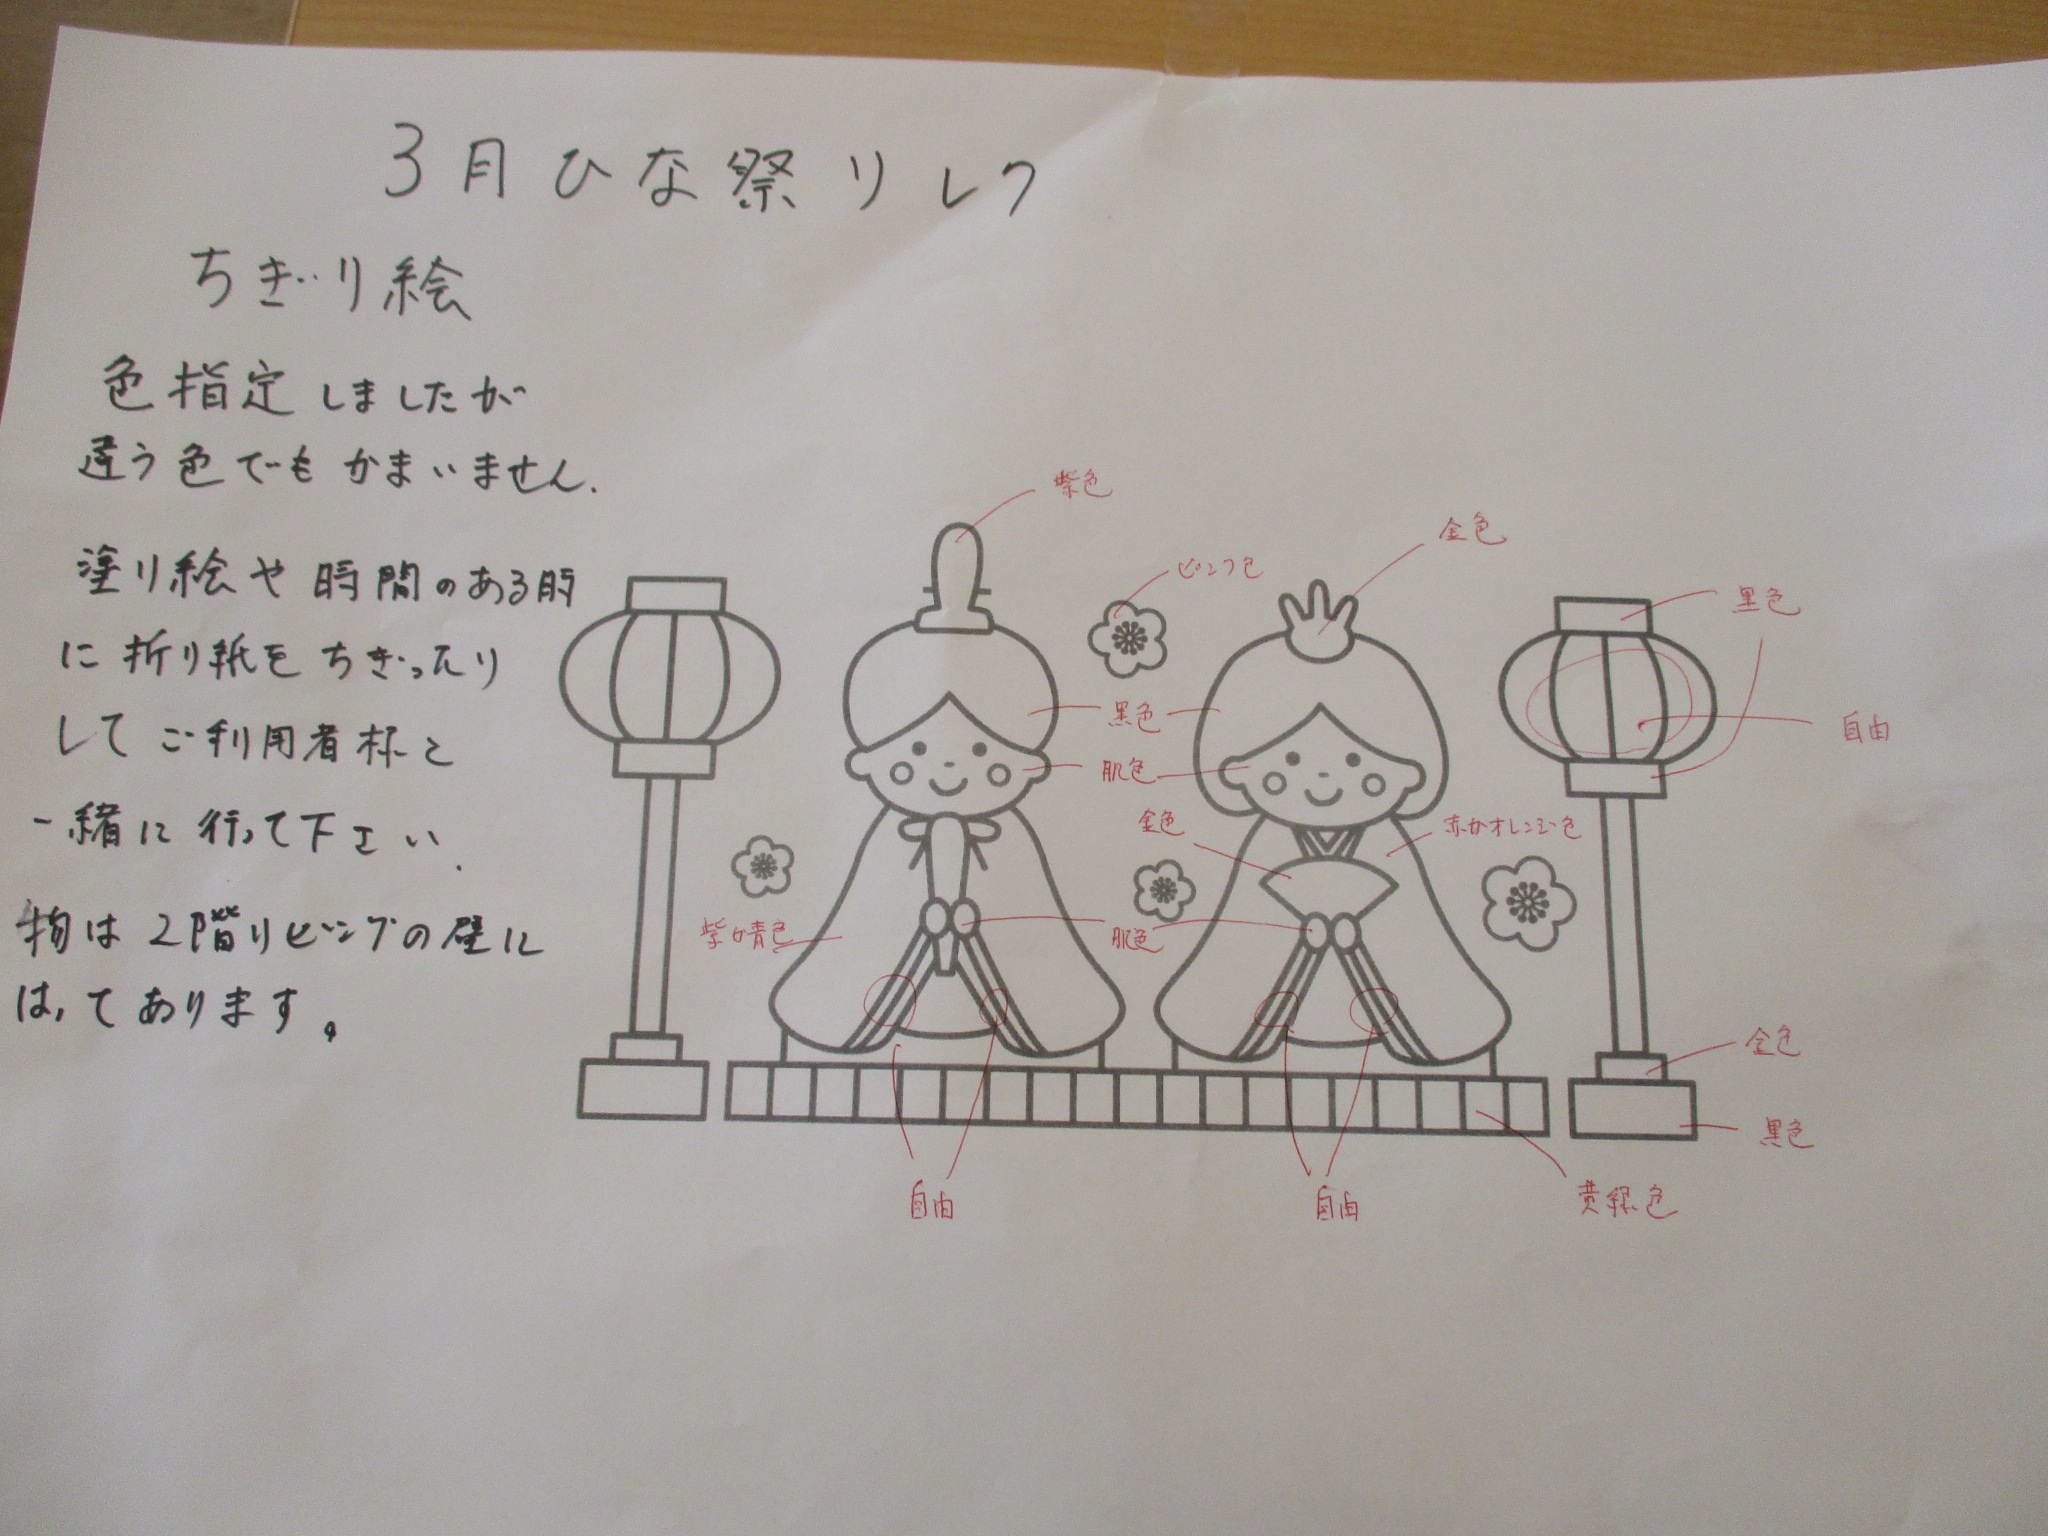 3月ひな祭リレク
ちぎり絵
色指定しましたが
違う色でもかまいません.
塗り絵や時間のある時
に折り紙をちぎったり
してご利用者様と
一緒に行って下さい.
物は2階リビングの壁に
はってあります。
紫色
金色
ピンク色
黒色
黒色
自由
肌色
金色
赤かオレンジ色
紫か青色
肌色
金色
黒色
自由
自由
黄緑色